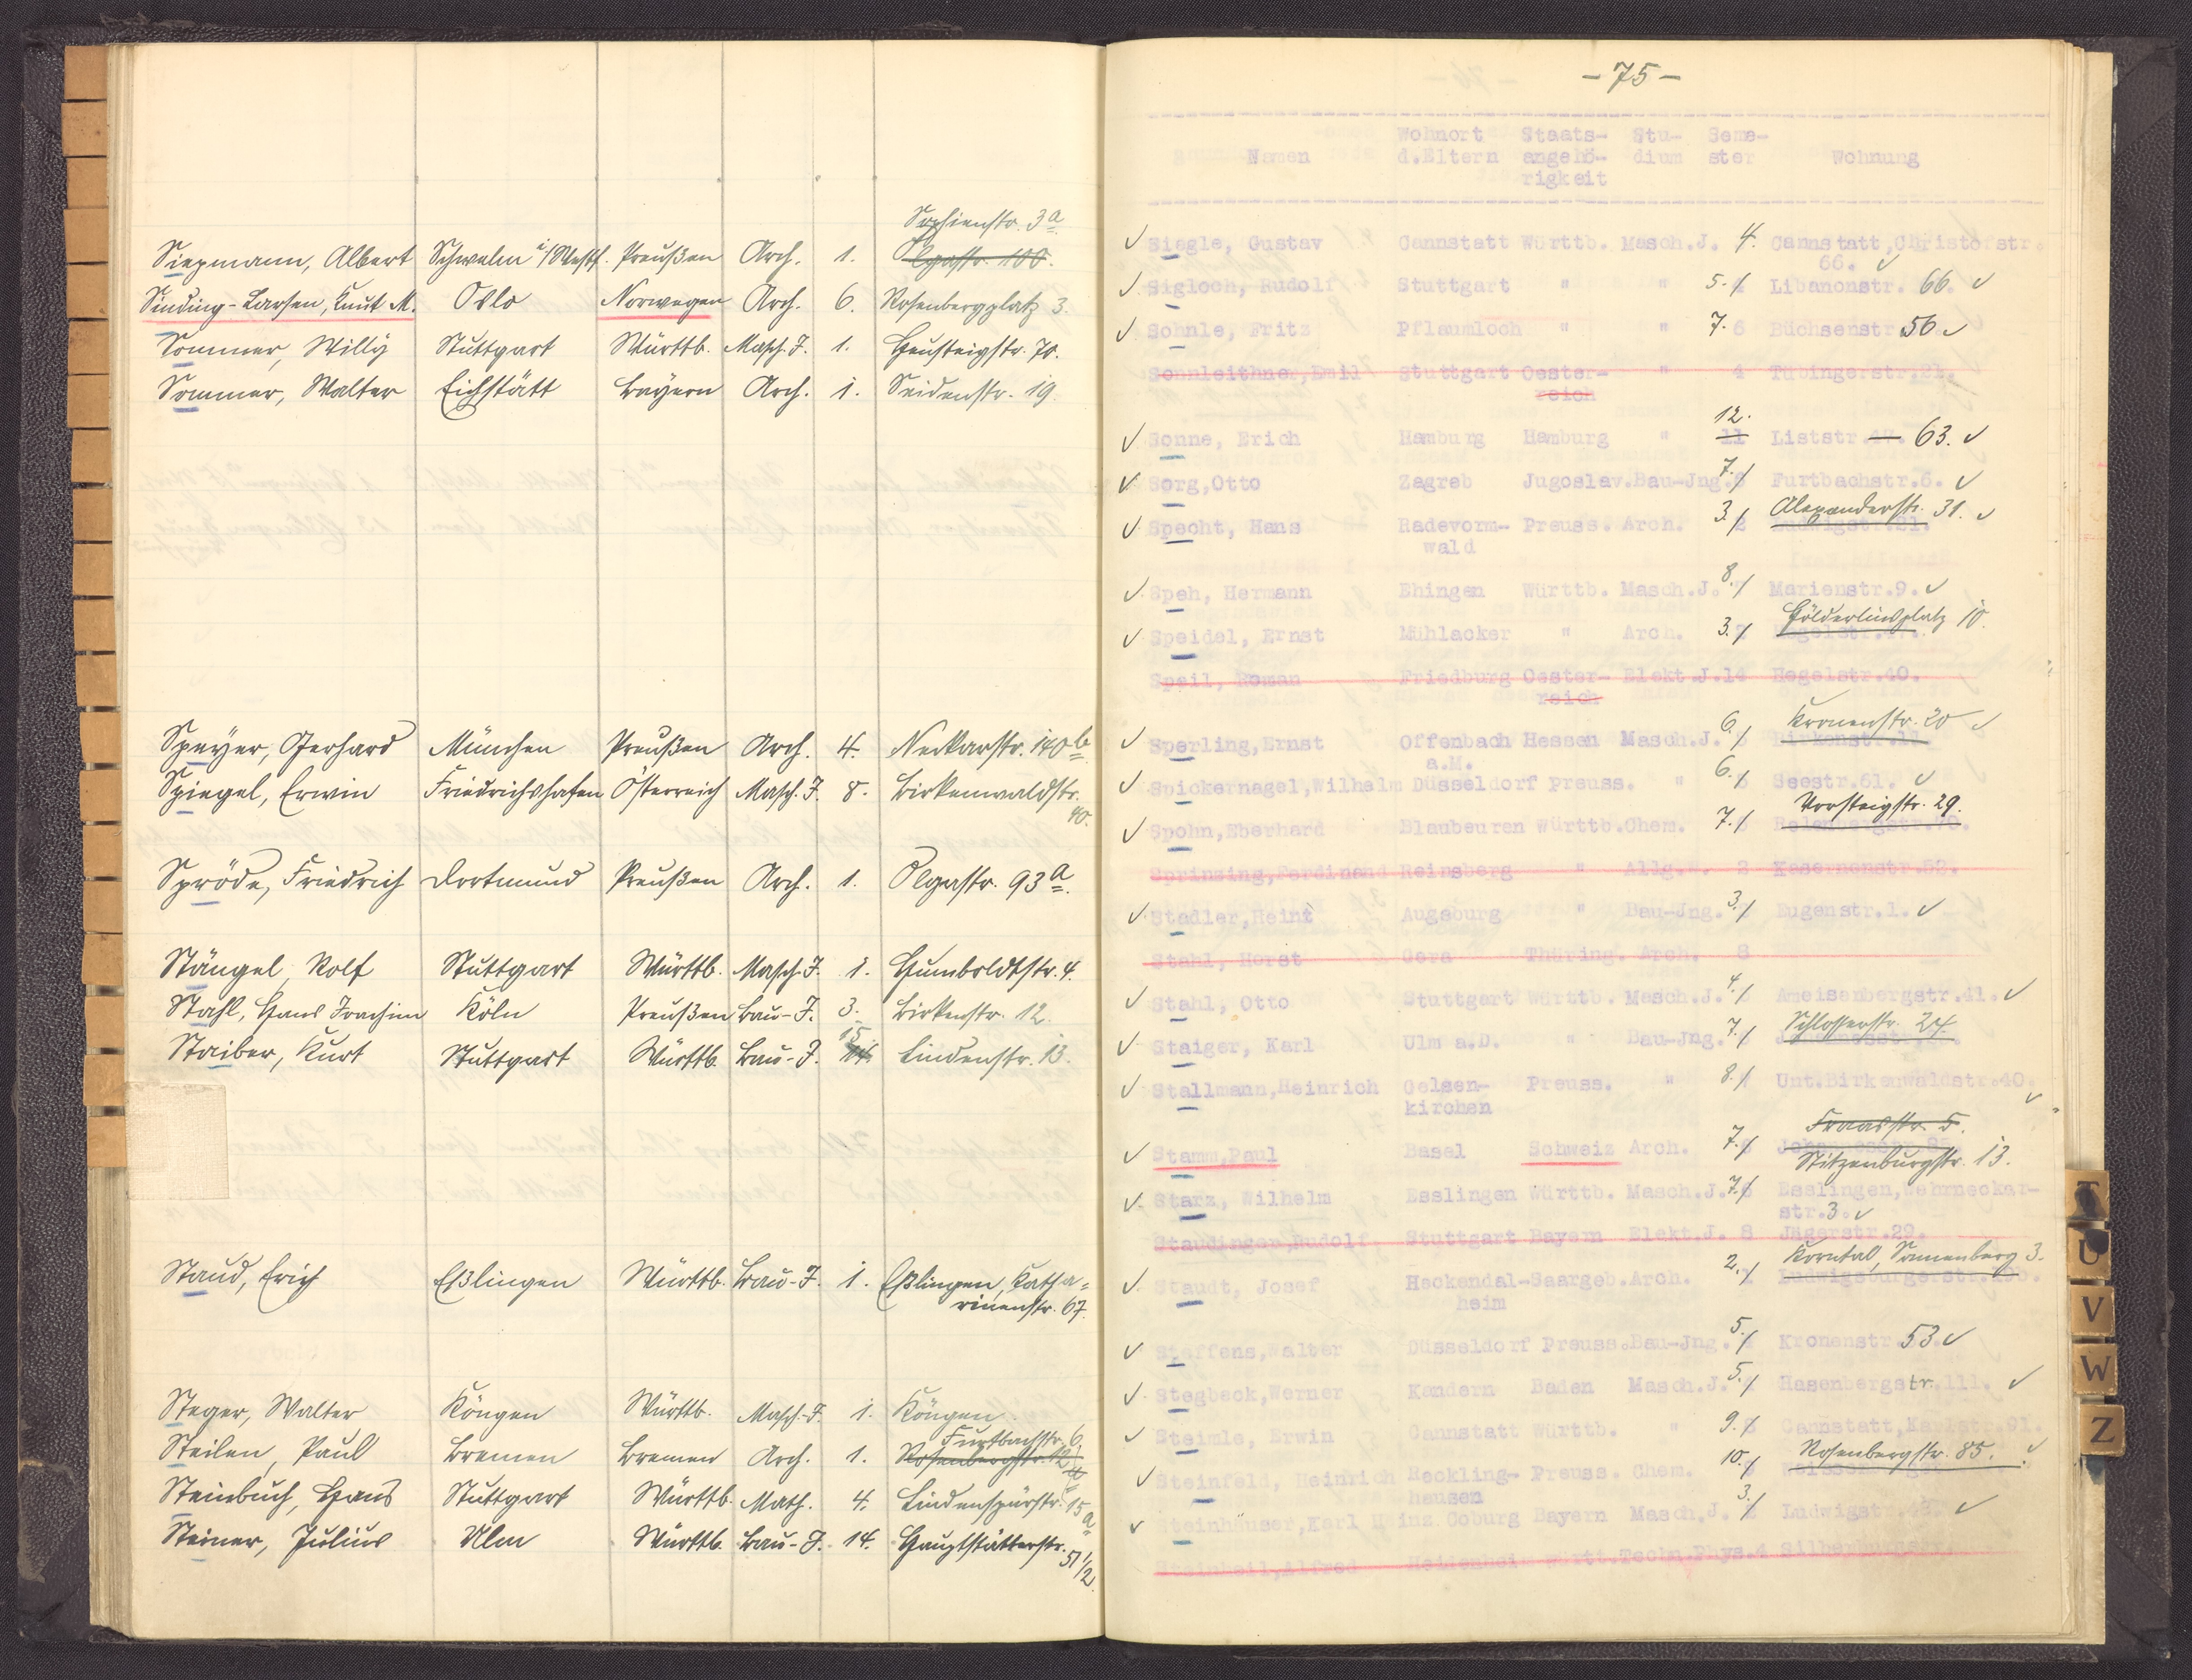 Sophienstr. 3a
Siepmann, Albert Schwelm i/Westf. Preußen Arch. 1. Olgastr. 100.
Sinding-Larsen, Knut M. Oslo Norwegen Arch. 6. Rosenbergplatz 3.
Sommer, Willy Stuttgart Württb. Masch. J. 1. Heusteigstr. 70.
Sommer, Walter Eichstätt Bayern Arch. 1. Seidenstr. 19.
Speyer, Gerhard München Preußen Arch. 4. Neckarstr. 140b
Spiegel, Erwin Friedrichshafen Österreich Masch. J. 8. Birkenwaldstr.
40.
Spröde, Friedrich Dortmund Preußen Arch. 1. Olgastr. 93a.
Stängel, Rolf Stuttgart Württb. Masch. J. 1. Humboldtstr. 4.
Stahl, Hans Joachim Köln Preußen Bau-J. 3. Birkenstr. 12.
15
Staiber, Kurt Stuttgart Württb. Bau-J. 14. Lindenstr. 13.
Staud, Erich Eßlingen Württb. Bau-J. 1. Eßlingen, Katha-
rinenstr. 67.
Steger, Walter Köngen Württb. Masch-J. 1. Köngen.
Furtbachstr. 6
Steilen, Paul Bremen Bremen Arch. 1. Rosenbergstr.
Steinbuch, Hans Stuttgart Württb. Math. 4. Lindenspürstr. 15a
Steiner, Julius Ulm Württb. Bau-J. 14. Hauptstätterstr.
51 1/2.
-75-
Wohnort Staats- Stu- Seme-
Namen d.Eltern angehö- dium ster Wohnung
rigkeit
✓ Siegle, Gustav Cannstatt Württb. Masch.J. 4. Cannstatt,Christofstr.
66. ✓
✓ Sigloch, Rudolf Stuttgart " " 5. Libanonstr. 66. ✓
✓ Sohnle, Fritz Pflaumloch " " 7. 6 Büchsenstr 56 ✓
Sonnleithner,Emil Stuttgart Oester- " 4 Tübingerstr.21.
reich
12.
✓ Sonne, Erich Hamburg Hamburg " 11 Liststr. 63. ✓
✓ Sorg,Otto Zagreb Jugoslav.Bau-Jng. 7. Furtbachstr.6. ✓
Alexanderstr. 31. ✓
✓ Specht, Hans Radevorm- Preuss. Arch. 3. 2 Ludwigstr.21.
wald
✓ Speh, Hermann Ehingen Württb. Masch.J. 8. Marienstr.9. ✓
Hölderlinsplatz 10.
✓ Speidel, Ernst Mühlacker " Arch. 3.
Speil, Roman Friedburg Oester- Elekt.J.14 Hegelstr.40.
reich
Kronenstr. 20 ✓
✓ Sperling,Ernst Offenbach Hessen Masch.J. 6. Birkenstr.11.
a.M.
✓ Spickernagel,Wilhelm Düsseldorf Preuss. " 6. Seestr.61. ✓
Vorsteigstr. 29.
✓ Spohn,Eberhard Blaubeuren Württb.Chem. 7.
Sprinzing,Ferdinand Reinsberg " Allg.W. 2 Kasernenstr.52.
✓ Stadler,Heint Augsburg " Bau-Jng. 3. Eugenstr.1. ✓
Stahl, Horst Gera Thüring. Arch. 8
✓ Stahl, Otto Stuttgart Württb. Masch.J. 4. Ameisenbergstr.41. ✓
Schlosserstr. 24.
✓ Staiger, Karl Ulm a.D. " Bau-Jng. 7.
✓ Stallmann,Heinrich Gelsen- Preuss. " 8. Unt.Birkenwaldstr.40.
kirchen ✓
Fraasstr. 5.
✓ Stamm,Paul Basel Schweiz Arch. 7.
Stitzenburgstr. 13.
✓ Starz, Wilhelm Esslingen Württb. Masch.J. 7. 6 Esslingen,Wehrneckar-
str.3. ✓
Staudinger,Rudolf Stuttgart Bayern Elekt.J. 8 Jägerstr.29.
Korntal, Sonnenberg 3.
✓ Staudt, Josef Hackendal- Saargeb.Arch. 2. Ludwigsburgerstr.
heim
✓ Steffens,Walter Düsseldorf Preuss.Bau-Jng. 5. Kronenstr 53 ✓
✓ Stegbeck,Werner Kandern Baden Masch.J. 5. Hasenbergstr.111. ✓
✓ Steimle, Erwin Cannstatt Württb. " 9. Cannstatt,Karlstr.91.
Rosenbergstr. 85. ✓
✓ Steinfeld, Heinrich Reckling- Preuss. Chem. 10.
hausen
✓ Steinhäuser,Karl Heinz Coburg Bayern Masch.J. 3. Ludwigstr. ✓
Alfred Techn.Phys.4
T
U
V
W
Z